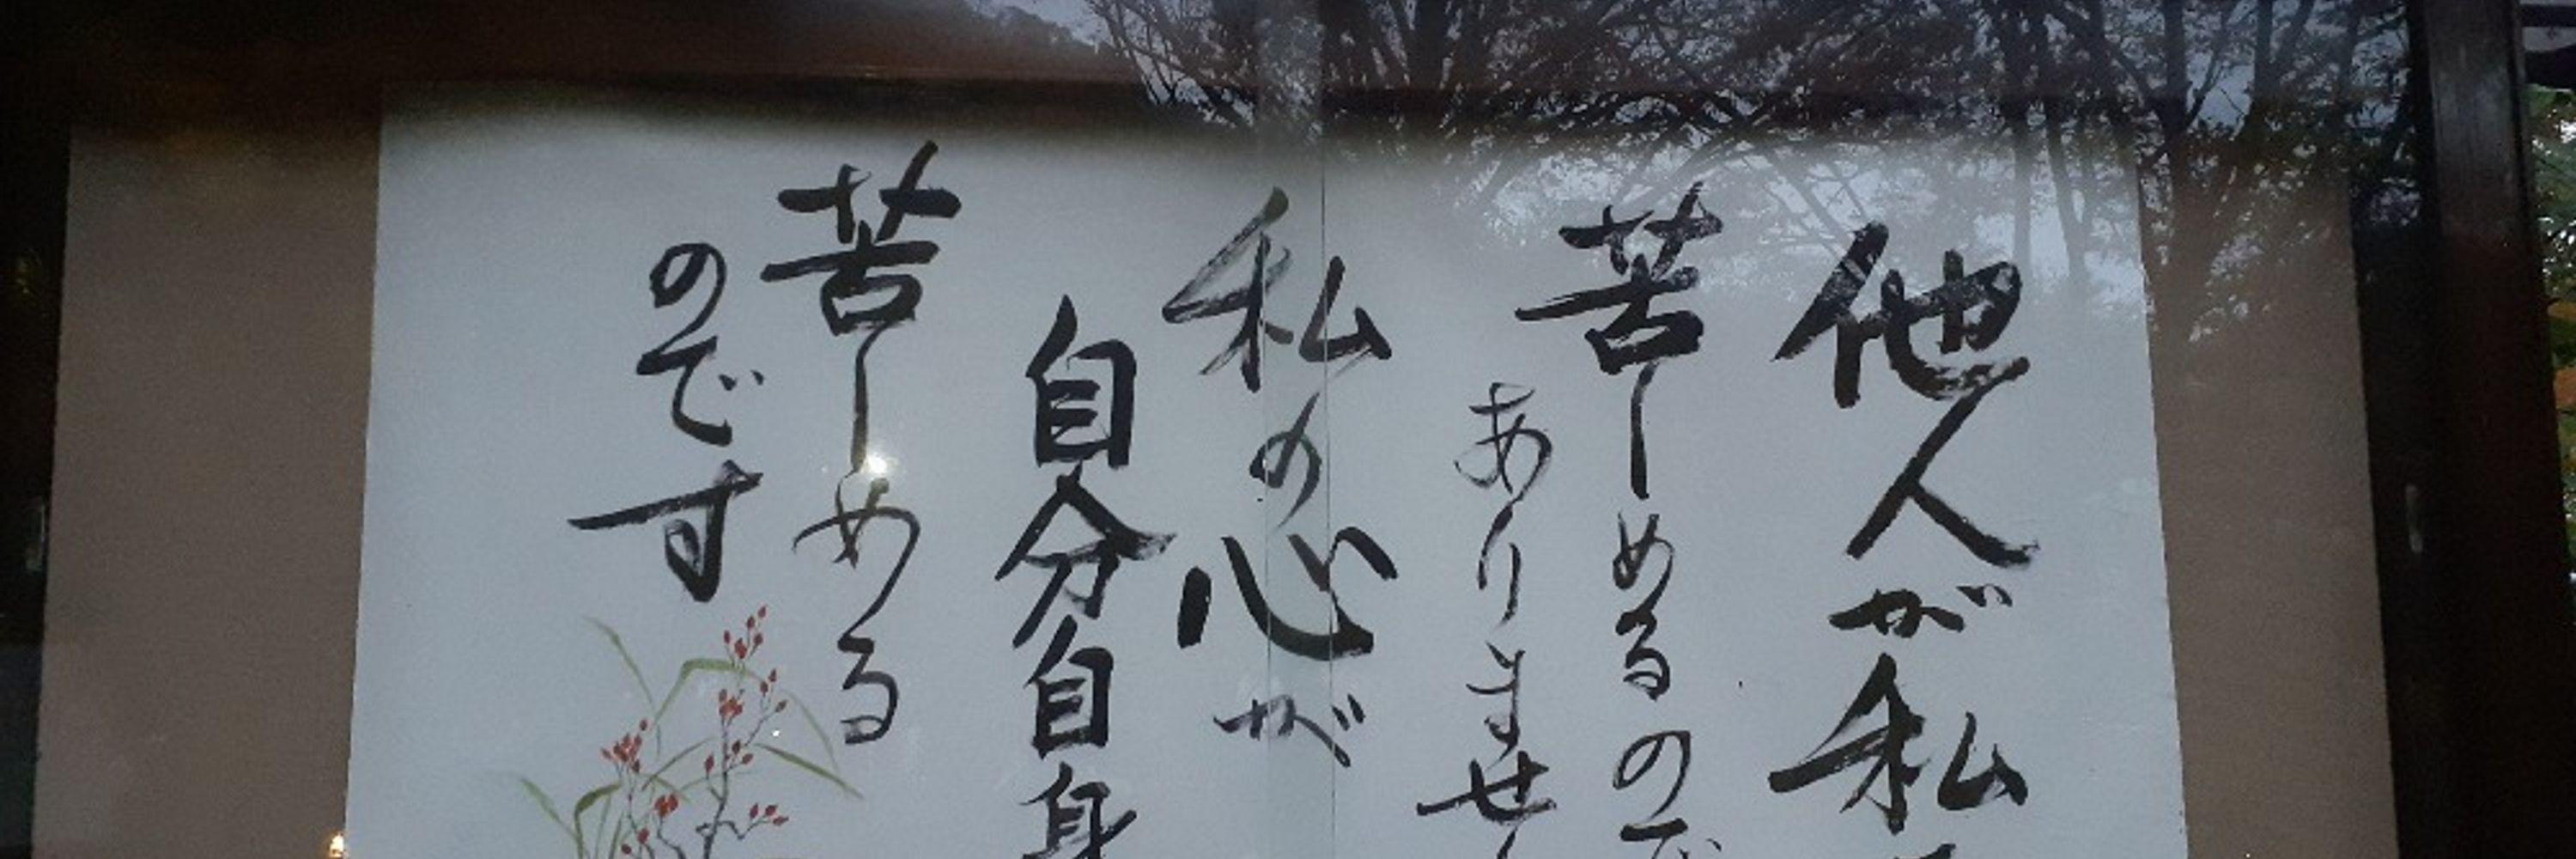 他人が私
苦しめるので
ありませ
私の心が
自分自身
苦しめる
のです